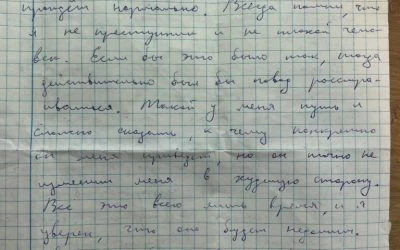 пройдёт нормально. Всегда помни, что
я не преступник и не плохой чело-
век. Если бы это было так, тогда
действительно был бы повод расстра-
иваться. Такой у меня путь и
сложно сказать, к чему конкретно
он меня приведёт, но он точно не
изменит меня в худшую сторону.
Все это всего лишь время, и я
уверен, что оно будет недолгим.